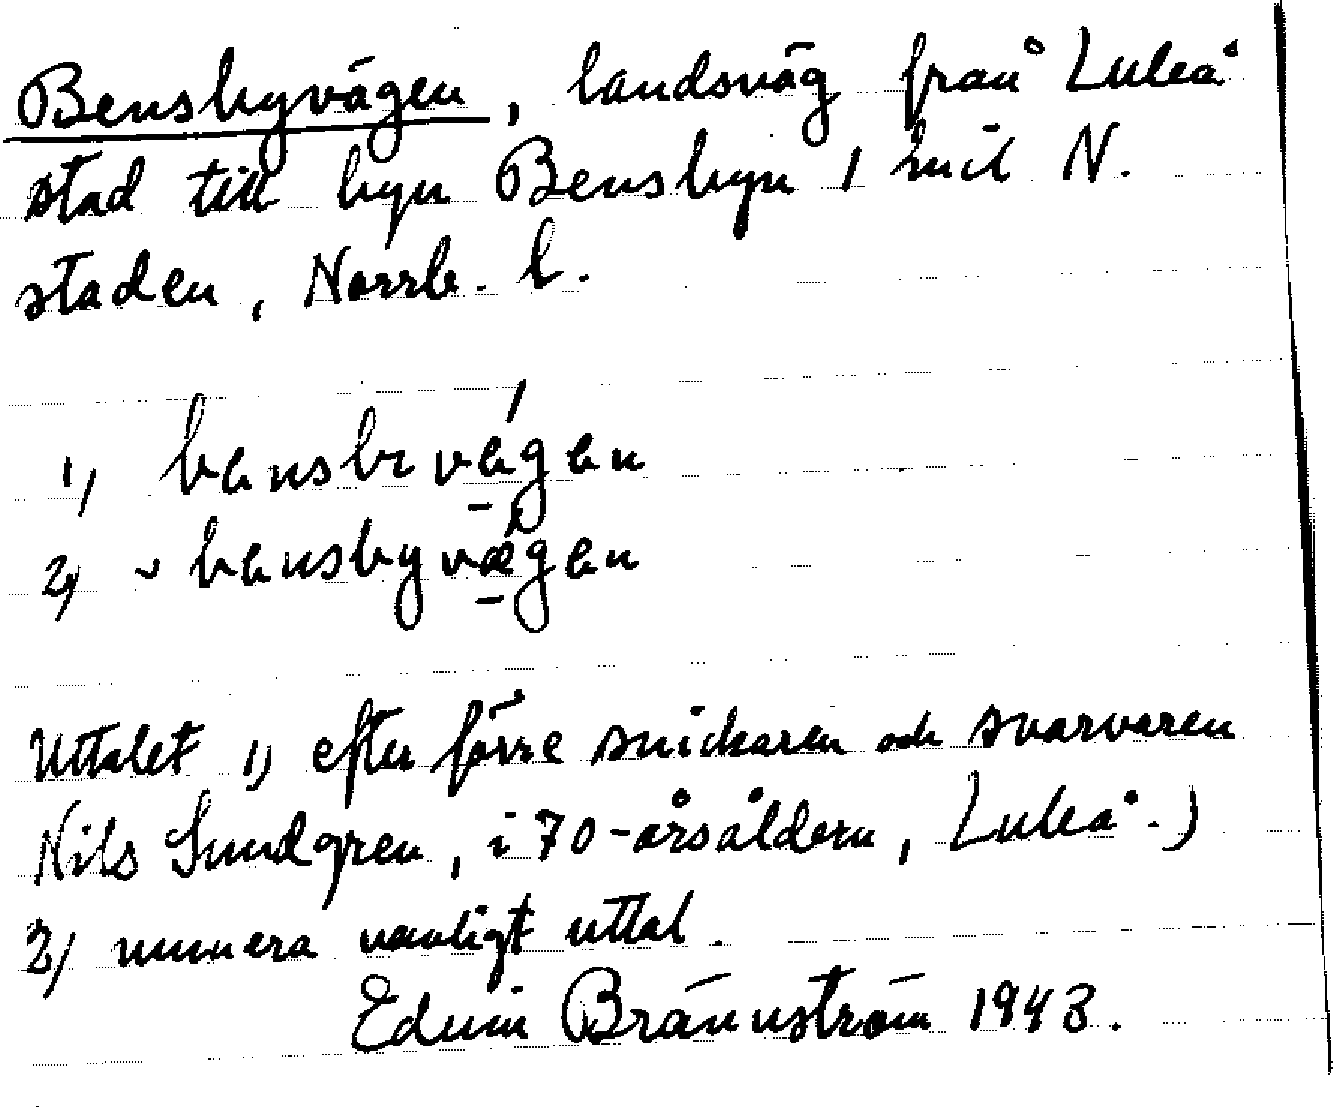 Bensbyvägen, landsväg från Luleå
stad till byn Bensbyn 1 mil N.
staden, Norrb. l.
1) bensbrvégen
2) bensbyvægen
Uttalet 1) efter förre snickaren och svarvaren
Nils Sundgren, i 70-årsåldern, Luleå.)
2) numera vanligt uttal.
Edvin Brännström 1943.